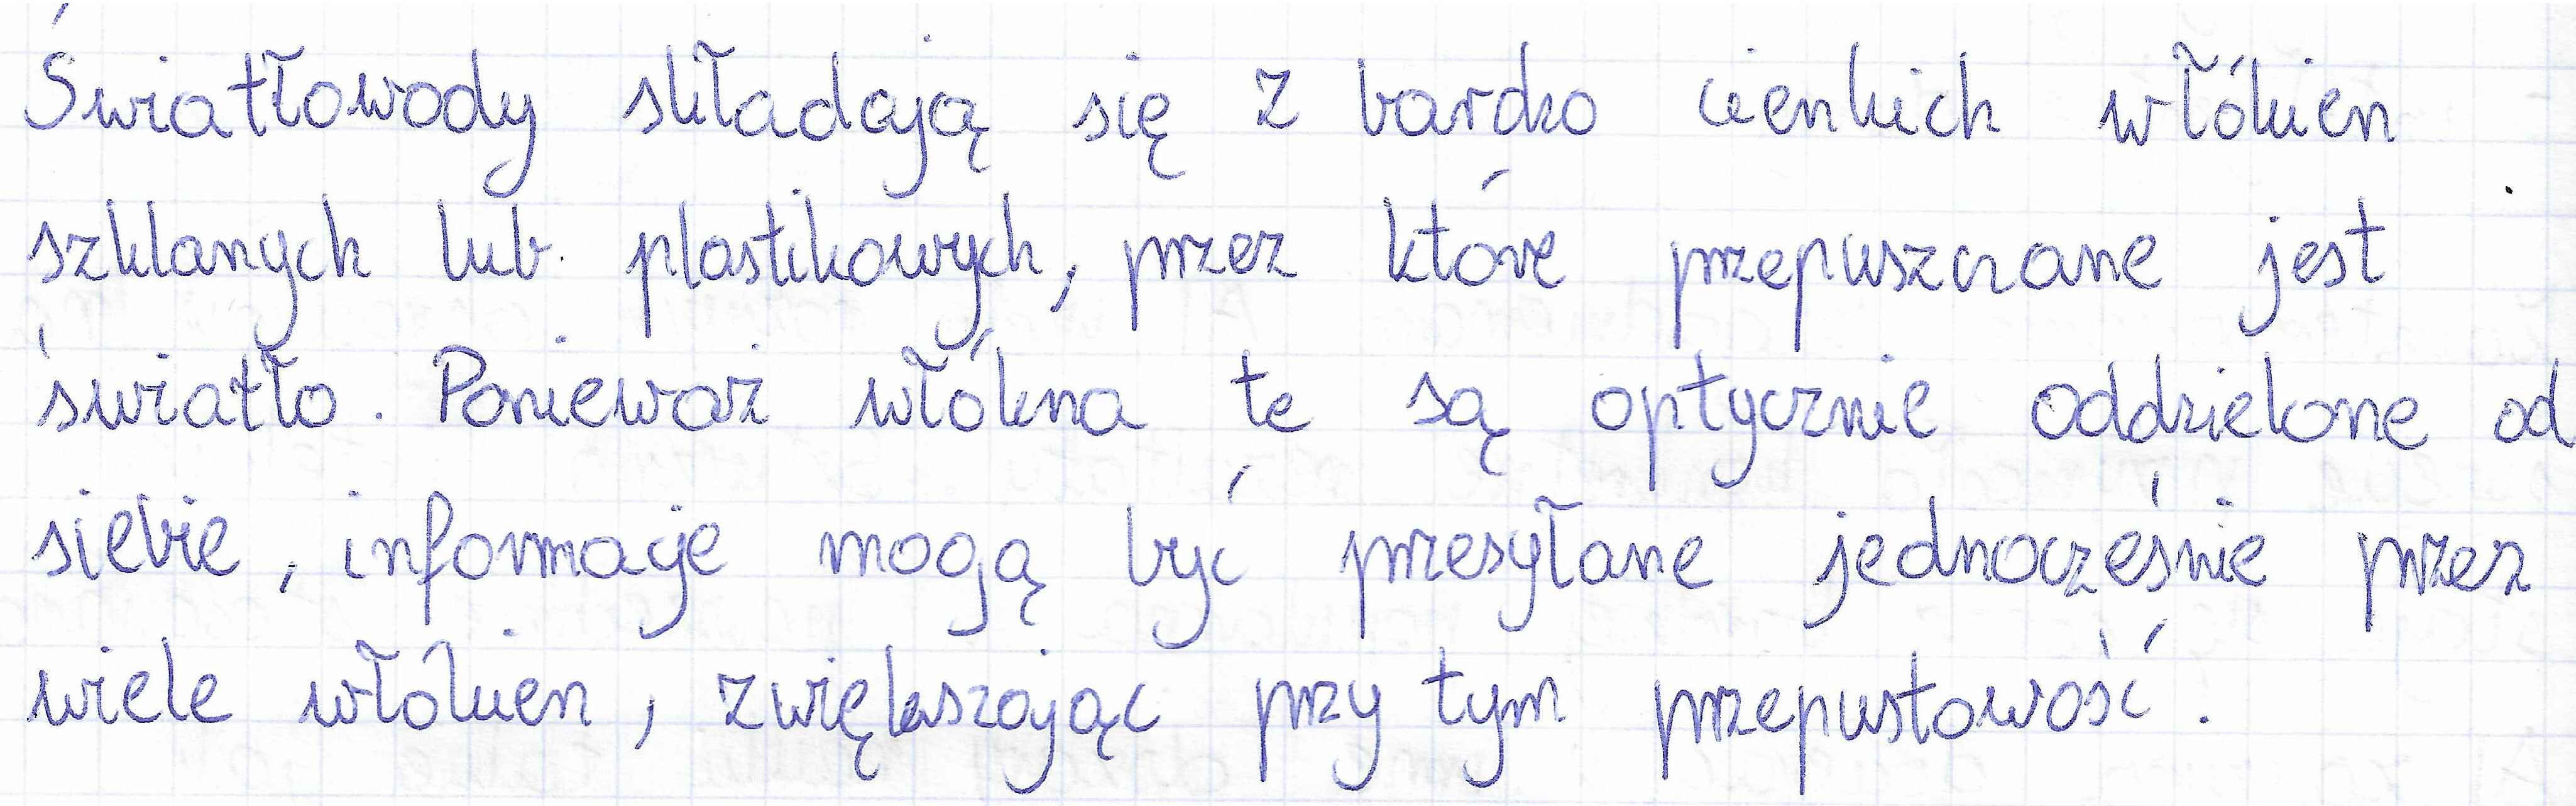 Światłowody składają się z bardzo cienkich włókien
szklanych lub plastikowych, przez które przepuszczane jest
światło. Ponieważ włókna te są optycznie oddzielone od
siebie, informacje mogą być przesyłane jednocześnie przez
wiele włókien, zwiększając przy tym przepustowość.